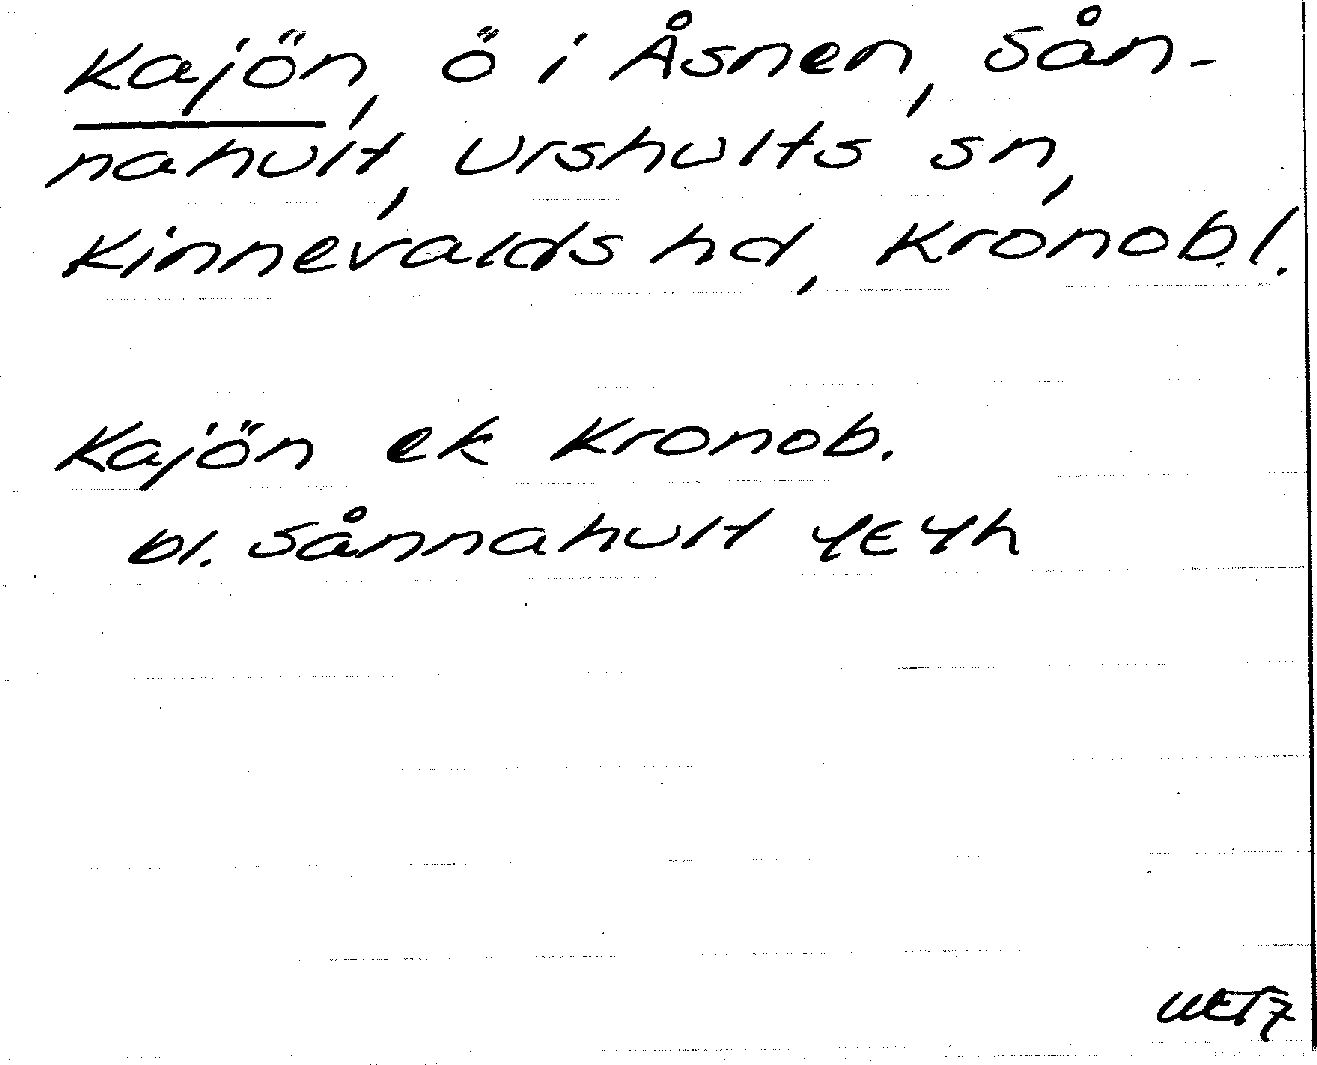 Kajön, ö i Åsnen, Sån-
nahult, Urshults sn,
Kinnevalds hd, Kronob.l.
Kajön ek Kronob.
bl. Sånnahult 4E4h